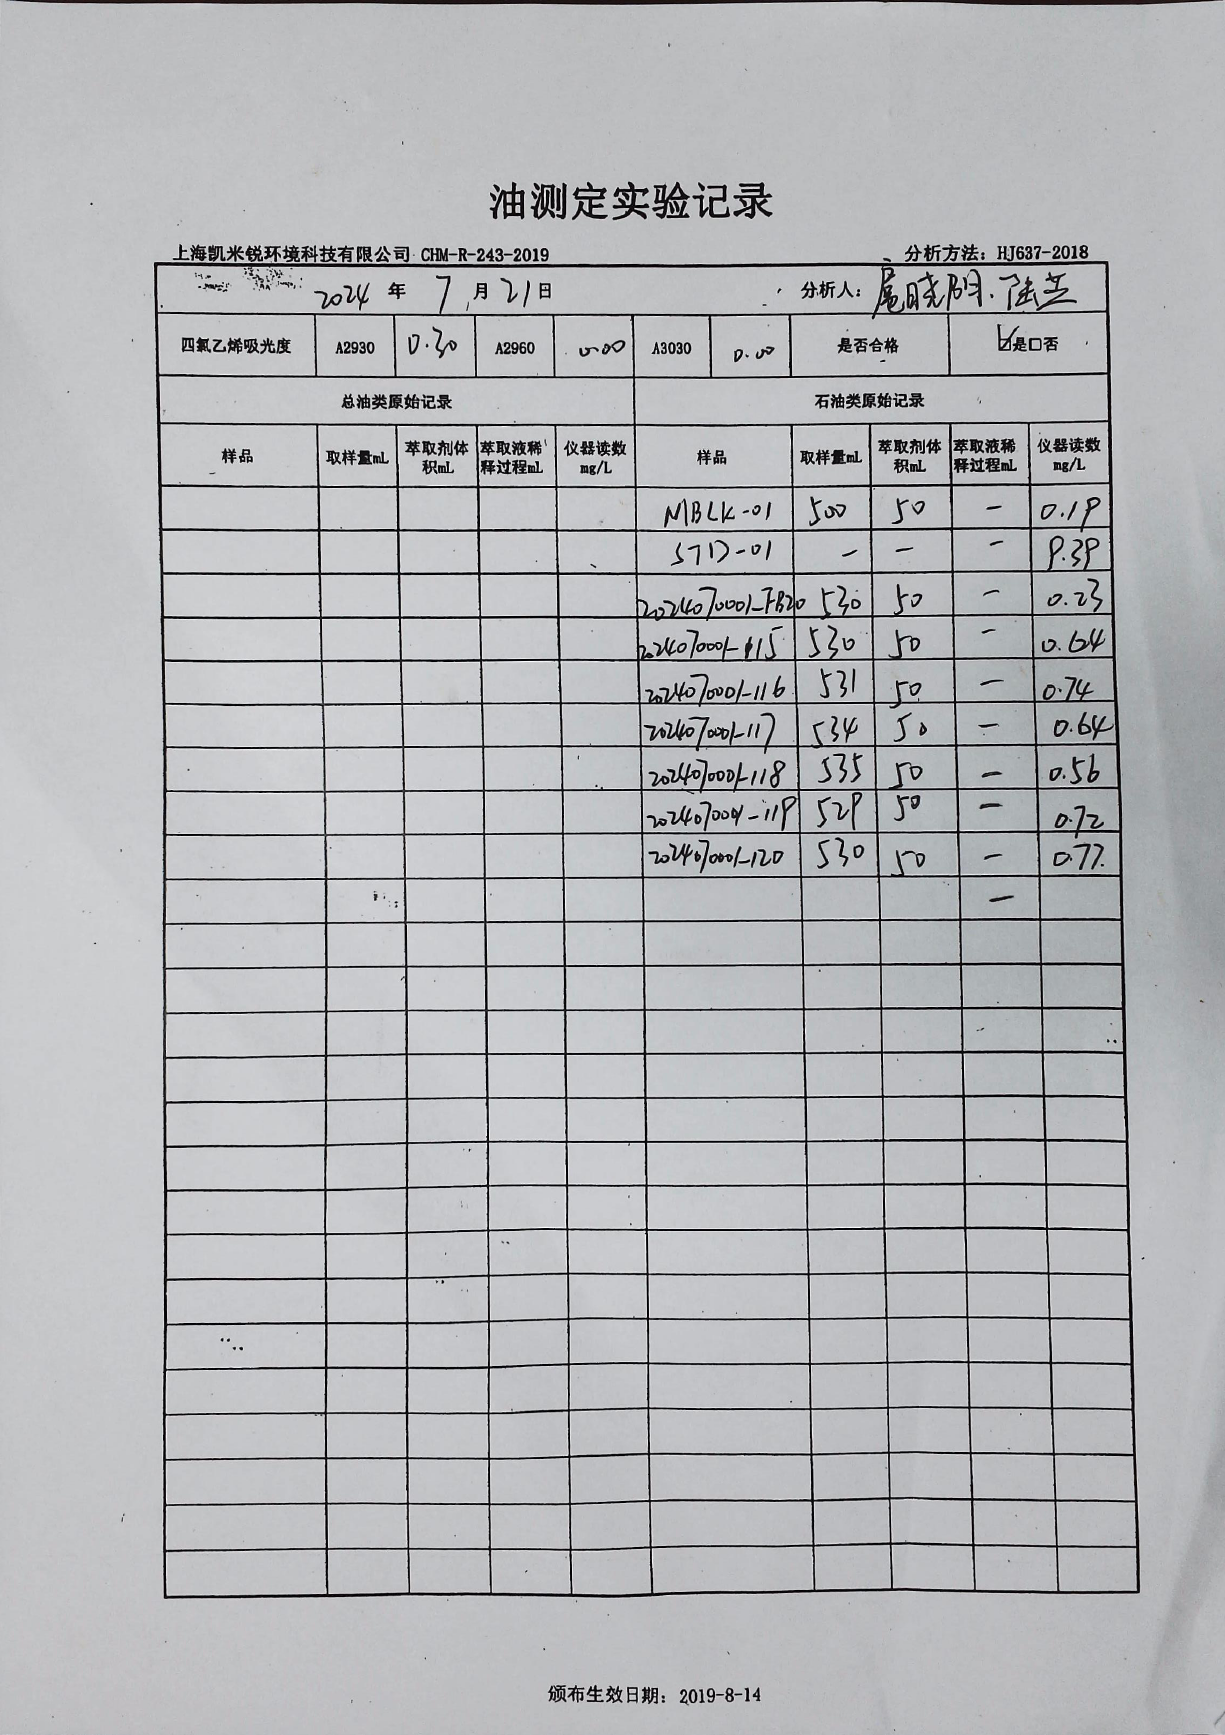 油测定实验记录
上海凯米锐环境科技有限公司 CHM-R-243-2019 分析方法：HJ637-2018
2024 年 7 月 21 日 分析人：晓明、陆芝
四氯乙烯吸光度 A2930 0.30 A2960 0.00 A3030 0.00 是否合格 ☑是□否
总油类原始记录 石油类原始记录
样品 取样量mL 萃取剂体积mL 萃取液稀释过程mL 仪器读数mg/L 样品 取样量mL 萃取剂体积mL 萃取液稀释过程mL 仪器读数mg/L
MBLK-01 500 50 — 0.19
STD-01 — — — 9.39
2024070001-FB20 530 50 — 0.23
2024070001-115 530 50 — 0.64
2024070001-116 531 50 — 0.74
2024070001-117 534 50 — 0.64
2024070001-118 535 50 — 0.56
2024070001-119 529 50 — 0.72
2024070001-120 530 50 — 0.77
—
颁布生效日期：2019-8-14